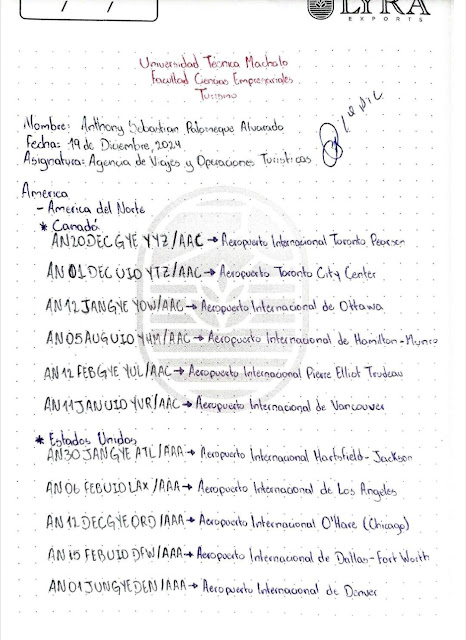 LYRA
EXPORTS
Universidad Técnica Machala
Facultad Ciencias Empresariales
Turismo
Nombre: Anthony Sebastian Palomeque Alvarado
Fecha: 19 de Diciembre, 2024
Asignatura: Agencia de Viajes y Operaciones Turisticas
America
- America del Norte
* Canadá
AN20DECGYE YYZ/AAC → Aeropuerto Internacional Toronto Pearson
AN01DECUIO YTZ/AAC → Aeropuerto Toronto City Center
AN12JANGYE YOW/AAC → Aeropuerto Internacional de Ottawa
AN05AUGUIO YHM/AAC → Aeropuerto Internacional de Hamilton-Munro
AN12FEBGYE YUL/AAC → Aeropuerto Internacional Pierre Elliot Trudeau
AN11JANUIO YVR/AAC → Aeropuerto Internacional de Vancouver
* Estados Unidos
AN30JANGYE ATL/AAA → Aeropuerto Internacional Hartsfield-Jackson
AN06FEBUIO LAX/AAA → Aeropuerto Internacional de Los Angeles
AN12DECGYE ORD/AAA → Aeropuerto Internacional O'Hare (Chicago)
AN15FEBUIO DFW/AAA → Aeropuerto Internacional de Dallas-Fort Worth
AN01JUNGYE DEN/AAA → Aeropuerto Internacional de Denver